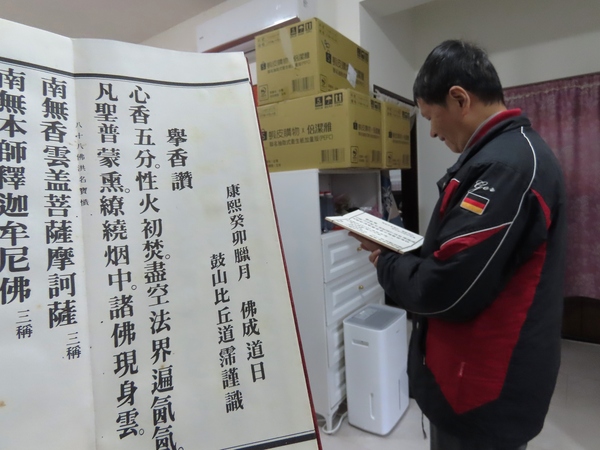 康熙癸卯臘月 佛成道日
鼓山比丘道霈謹識
舉香讚
心香五分。性火初焚。盡空法界遍氤氳。
凡聖普蒙熏。繚繞烟中。諸佛現身雲。
八十八佛洪名寶懺
南無香雲盖菩薩摩訶薩 三稱
南無本師釋迦牟尼佛 三稱
蝦皮購物 × 倍潔雅